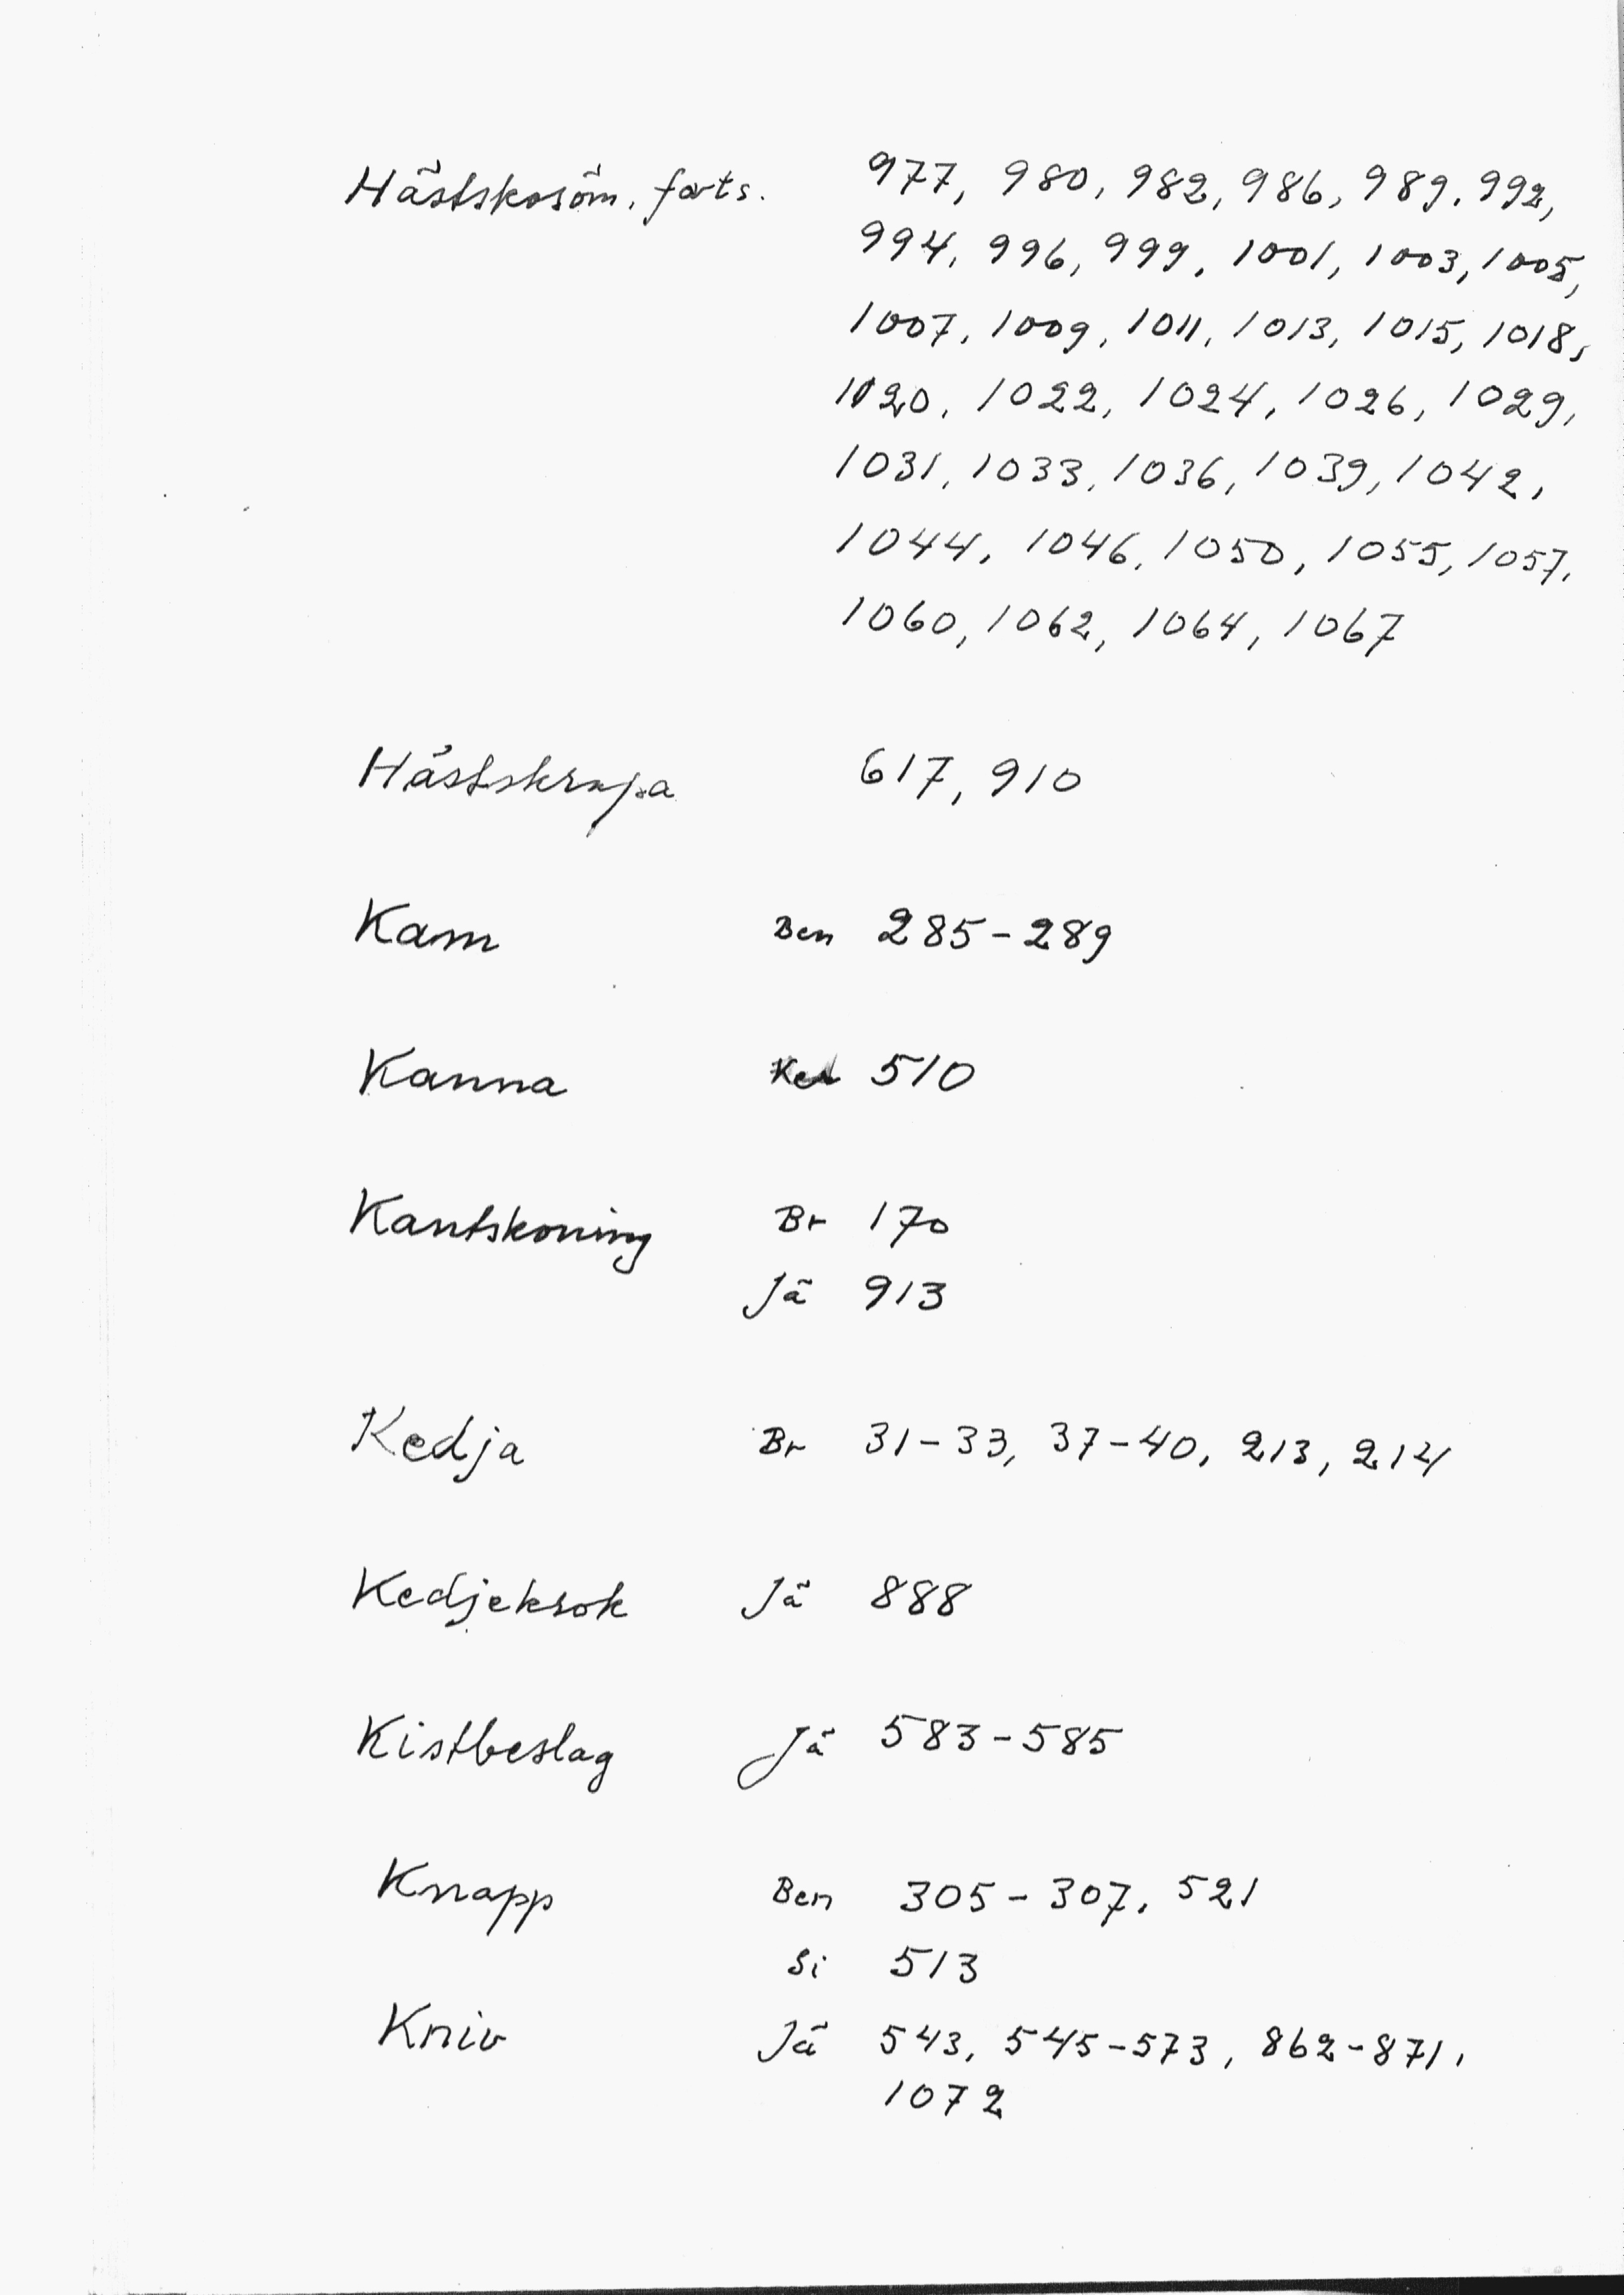 Hästskosöm, forts. 977, 980, 982, 986, 989, 992,
994, 996, 999, 1001, 1003, 1005,
1007, 1009, 1011, 1013, 1015, 1018,
1020, 1022, 1024, 1026, 1029,
1031, 1033, 1036, 1039, 1042,
1044, 1046, 1050, 1055, 1057,
1060, 1062, 1064, 1067
Hästskrapa 617, 910
Kam Ben 285-289
Kanna 510
Kantskoning Br 170
Jä 913
Kedja Br 31-33, 37-40, 213, 214
Kedjekrok Jä 888
Kistbeslag Jä 583-585
Knapp Ben 305-307, 521
Si 513
Kniv Jä 543, 545-573, 862-871,
1072